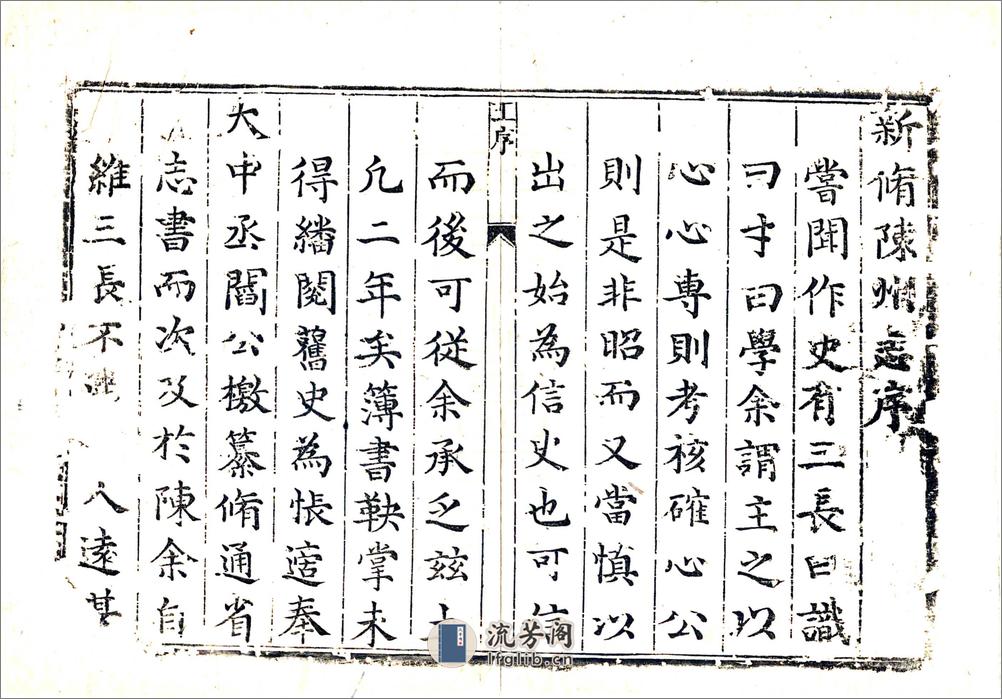 新脩陳州志序
嘗聞作史有三長曰識
曰才曰學余謂主之以
心心專則考核確心公
則是非昭而又當慎以
出之始為信史也可信
王序
而後可從余承乏兹土
凢二年矣簿書鞅掌未
得繙閱舊史為悵適奉
大中丞閻公檄纂脩通省
志書而次及於陳余自
維三長不 人遠甚
流芳阁
lfglib.cn